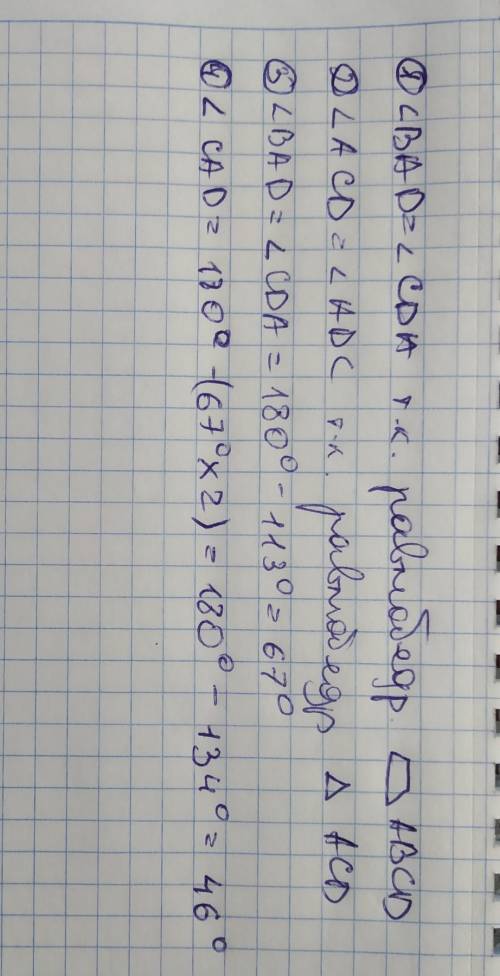 ① ∠BAD = ∠CDA т.к. равнобедр. ABCD
② ∠ACD = ∠ADC т.к. равнобедр △ ACD
③ ∠BAD = ∠CDA = 180° - 113° = 67°
④ ∠CAD = 180° - (67° x 2) = 180° - 134° = 46°